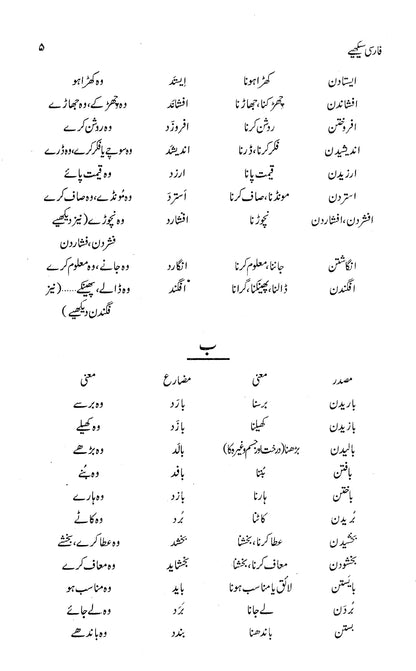 فارسی سیکھیے ۵
ایستادن کھڑا ہونا اِیستَد وہ کھڑا ہو
افشاندن چھڑکنا، جھاڑنا افشانَد وہ چھڑکے، وہ جھاڑے
افروختن روشن کرنا افروزَد وہ روشن کرے
اندیشیدن فکر کرنا، ڈرنا اندیشَد وہ سوچے یا فکر کرے، وہ ڈرے
ارزیدن قیمت پانا ارزد وہ قیمت پائے
استردن مونڈنا، صاف کرنا اُسترَد وہ مُونڈے، وہ صاف کرے
افشردن، افشاردن نچوڑنا افشارد وہ نچوڑے (نیز دیکھیے
فشردن، فشاردن
انگاشتن جاننا، معلوم کرنا انگارد وہ جانے، وہ معلوم کرے
افگندن ڈالنا، پھینکنا، گرانا افگند وہ ڈالے، پھینکے......(نیز
فگندن دیکھیے)
ب
مصدر معنی مضارع معنی
باریدن برسنا بارَد وہ برسے
بازیدن کھیلنا بازَد وہ کھیلے
بالیدن بڑھنا (درخت اور جسم وغیرہ کا) بالَد وہ بڑھے
بافتن بُننا بافد وہ بُنے
باختن ہارنا بازد وہ ہارے
بُریدن کاٹنا بُرد وہ کاٹے
بخشیدن عطا کرنا، بخشنا بخشد وہ عطا کرے، بخشے
بخشودن معاف کرنا، بخشنا بخشاید وہ معاف کرے
بایَستن لائق یا مناسب ہونا باید وہ مناسب ہو
بُردَن لے جانا بَرَد وہ لے جائے
بستن باندھنا بندد وہ باندھے